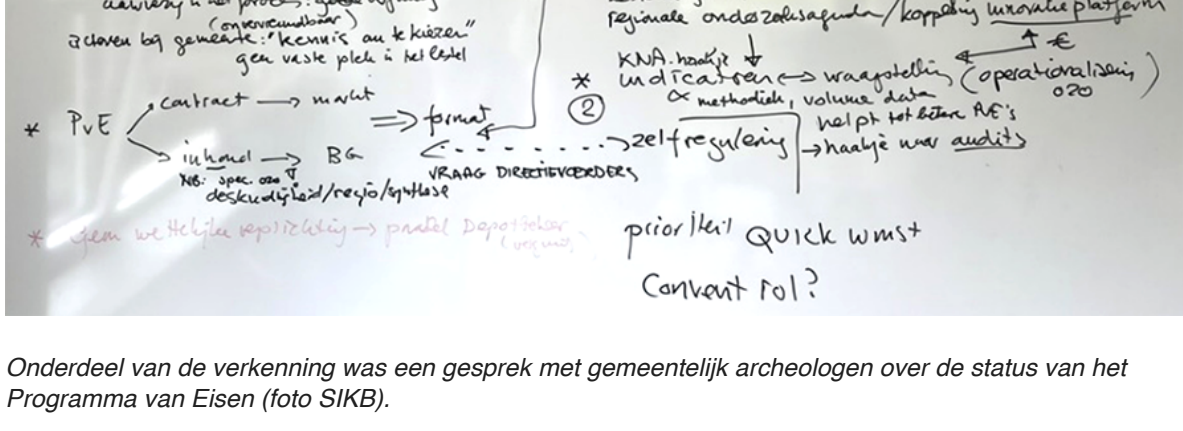 (onverwoordbaar)
actoren bij gemeente: "kennis om te kiezen"
geen vaste plek in het bestel
* PvE
contract → markt
⇒ format
inhoud → BG
NB: spec. ozo
deskundigheid/regio/synthese
VRAAG DIRECTIEVOERDERS
* geen wettelijke verplichting →
regionale onderzoeksagenda/koppeling innovatieplatform
€
KNA. haakje
* indicatoren ↔ vraagstelling (operationalisering
ozo)
& methodiek, volume data
②
helpt tot betere PvE's
zelfregulering
→ haakje naar audits
prioriteit QUICK winst
Convent rol?
Onderdeel van de verkenning was een gesprek met gemeentelijk archeologen over de status van het
Programma van Eisen (foto SIKB).